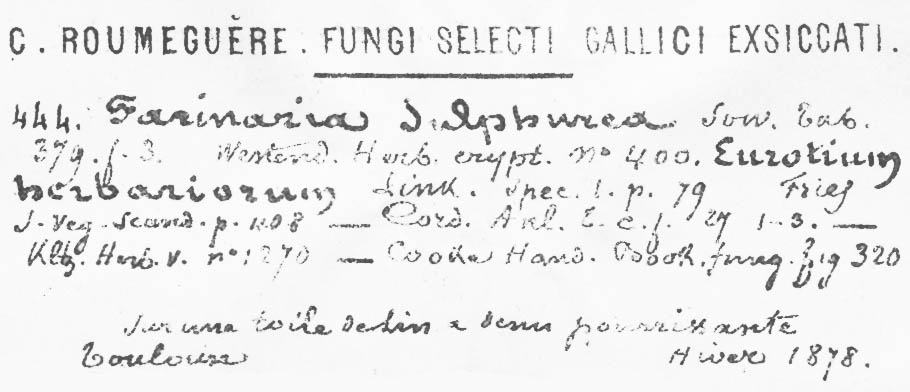 C. ROUMEGUÈRE. FUNGI SELECTI GALLICI EXSICCATI.
444. Farinaria Sulphurea Sow. Tab.
379. f. 3. Westend. Herb. crypt. No 400. Eurotium
herbariorum Link. Spec. 1. p. 79 Fries
S. Veg. Scand. p. — Cord. t. f. 27 1-3. —
Kltz. Herb. v. no 1270 — Cooke Hand. Book. fung. fig 320
Sur une toile de lin a demi pourrissante
Toulouse Hiver 1878.